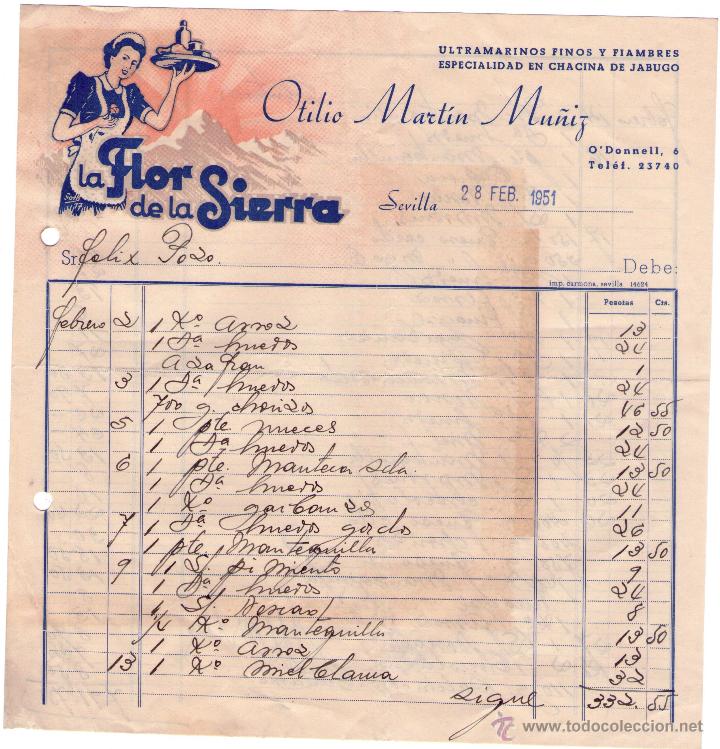 ULTRAMARINOS FINOS Y FIAMBRES
ESPECIALIDAD EN CHACINA DE JABUGO
Otilio Martín Muñiz
O'Donnell, 6
Teléf. 23740
la Flor
de la Sierra
Sevilla 28 FEB. 1951
Sr. Felix Pozo Debe:
imp. carmona, sevilla 14624
Pesetas Cts.
Febrero 2 1 Kº Arroz 13
1 Dª huevos 24
Azafran 1
3 1 Dª huevos 24
700 g. chorizos 46 55
5 1 pte. nueces 12 50
1 Dª huevos 24
6 1 pte. Manteca 13 50
1 Dª huevos 24
1 Kº garbanzos 11
7 1 Dª huevos gordos 26
1 pte. Mantequilla 13 50
9 1 pimiento 9
1 Dª huevos 24
8
1/4 Kº Mantequilla 13 50
1 Kº Arroz 13
13 1 Kº Miel 32
sigue 332. 55
www.todocoleccion.net